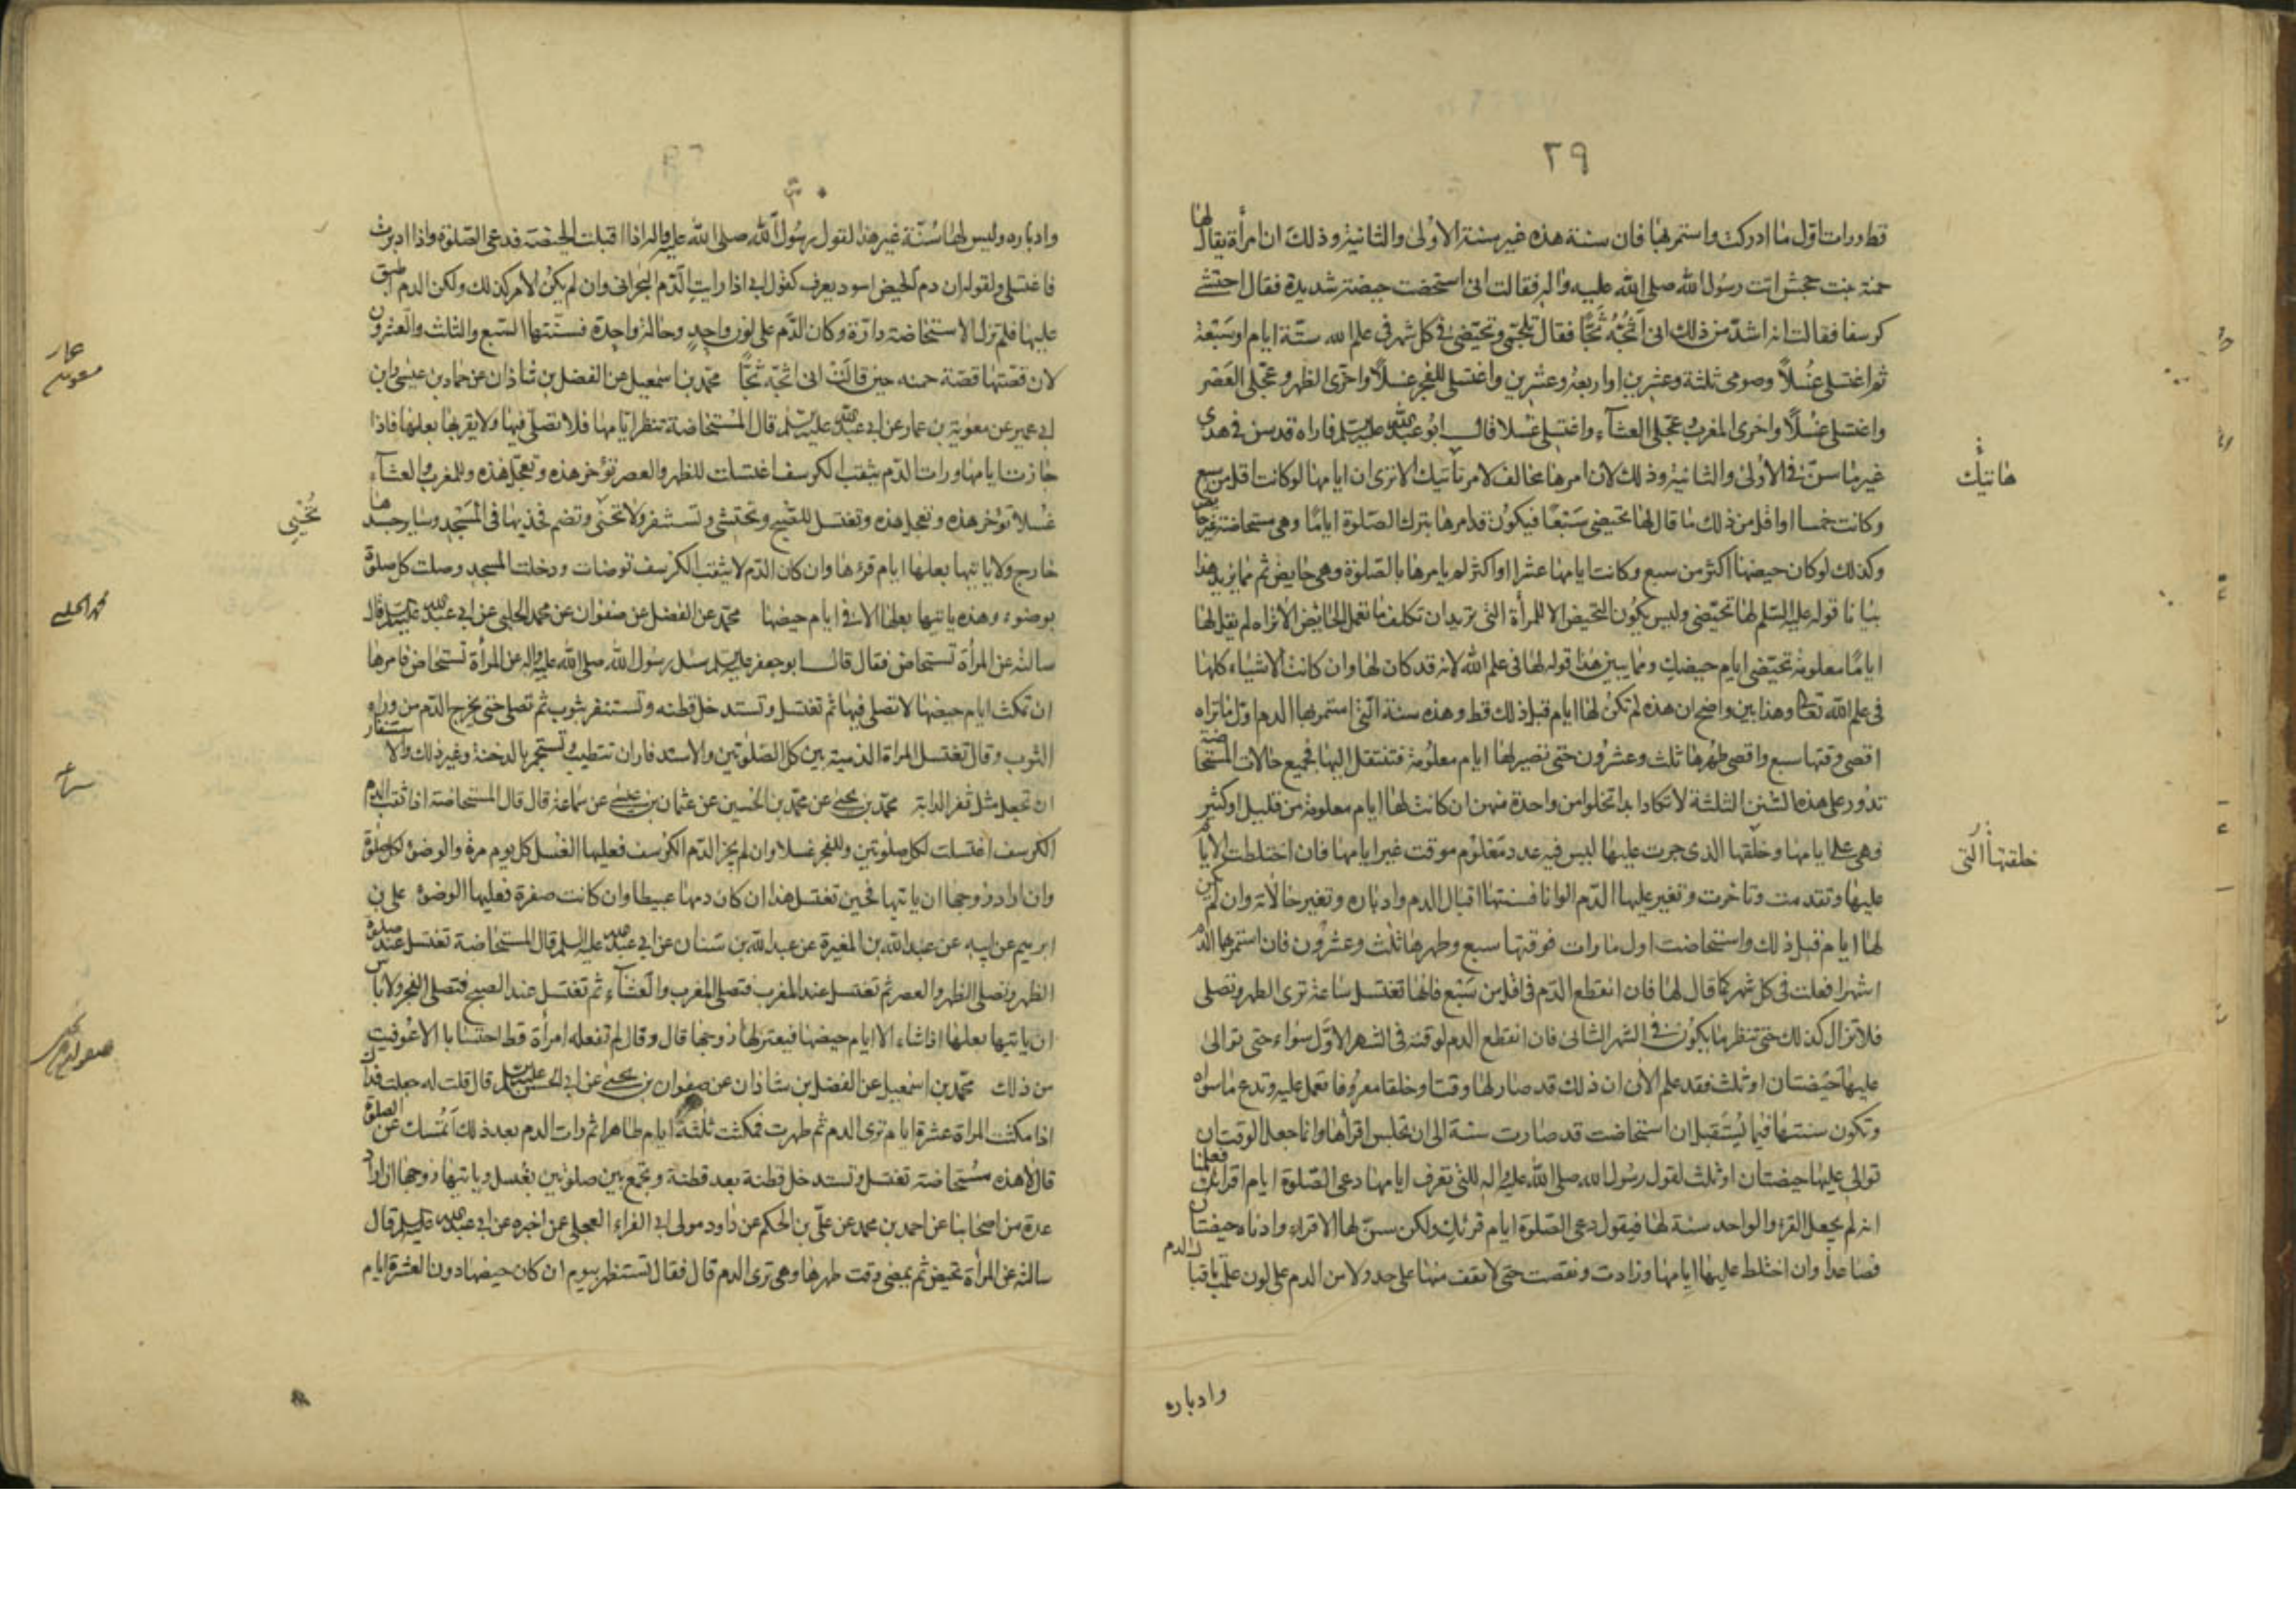 ٢٩
قط ورات اول ما ادركت واستمر بها فان سنة هذه غير سنة الاولى والثانية وذلك ان امرأة يقال لها
حمنة بنت جحش اتت رسول الله صلى الله عليه واله فقالت انى استحضت حيضة شديدة فقال احتشى
كرسفا فقالت انه اشد من ذلك انى اثجه ثجا فقال تلجمى وتحيضى فى كل شهر فى علم الله ستة ايام او سبعة
ثم اغتسلى غسلاً وصومى ثلثة وعشرين او اربعة وعشرين واغتسلى للفجر غسلاً واخرى الظهر وعجلى العصر
واغتسلى غسلاً واخرى المغرب وعجلى العشآء واغتسلى غسلا قال ابو عبدالله عليه السلم فاراه قد سن فى هذه
غير ما سن فى الاولى والثانية وذلك لان امرها مخالف لامر تأتيك الا ترى ان ايامها لو كانت اقل من سبع
هاتيك
وكانت خمسا او اقل من ذلك ما قال لها تحيضى سبعًا فيكون قد امرها بترك الصلوة ايامًا وهى مستحاضة غير حائض
وكذلك لو كان حيضها اكثر من سبع وكانت ايامها عشرا او اكثر لم يامرها بالصلوة وهى حايض ثم مما يزيد هذا
بيانا قوله عليه السلم لها تحيضى وليس يكون التحيض الا للمرأة التى تريد ان تكلف ما تعمل الحايض الا تراه لم يقل لها
ايامًا معلومة تحيضى ايام حيضك ومما يبين هذا قوله لها فى علم الله لانه قد كان لها وان كانت الاشياء كلها
فى علم الله تعالى وهذا بين واضح ان هذه لم تكن لها ايام قبل ذلك قط وهذه سنة التى استمر بها الدم اول ما تراه
اقصى وقتها سبع واقصى طهرها ثلث وعشرون حتى تصير لها ايام معلومة فتنتقل اليها فجميع حالات المستحاضة
تدور على هذه السنن الثلثة لا تكاد ابدا تخلو من واحدة منهن ان كانت لها ايام معلومة من قليل او كثير
فهى على ايامها وخلقها الذى جرت عليها ليس فيه عدد معلوم موقت غير ايامها فان اختلطت الايام
خلقتها التى
عليها وتقدمت وتاخرت وتغير عليها الدم الوانا فسنتها اقبال الدم وادباره وتغير حالاته وان لم يكن
لها ايام قبل ذلك واستحاضت اول ما رات فوقتها سبع وطهرها ثلث وعشرون فان استمر بها الدم
اشهرا فعلت فى كل شهر كما قال لها فان انقطع الدم فى اقل من سبع فانها تغتسل ساعة ترى الطهر وتصلى
فلا تزال كذلك حتى تنظر ما يكون فى الشهر الثانى فان انقطع الدم لوقته فى الشهر الاول سواء حتى توالى
عليها حيضتان او ثلث فقد علم الان ان ذلك قد صار لها وقتا وخلقا معروفا تعمل عليه وتدع ما سواه
وتكون سنتها فيما يستقبل ان استحاضت قد صارت سنة الى ان تجلس اقرائها وانما جعل الوقت ان
توالى عليها حيضتان او ثلث لقول رسول الله صلى الله عليه واله للتى تعرف ايامها دعى الصلوة ايام اقرائك فعلمنا
انه لم يجعل القرء الواحد سنة لها فيقول دعى الصلوة ايام قرئك ولكن سن لها الاقراء وادناه حيضتان
فصاعدا وان اختلط عليها ايامها وزادت ونقصت حتى لا تقف منها على حد ولا من الدم على لون عملت باقبال الدم
وادباره
وادباره وليس لها سنة غير هذا لقول رسول الله صلى الله عليه واله اذا اقبلت الحيضة فدعى الصلوة واذا ادبرت
فاغتسلى ولقوله ان دم الحيض اسود يعرف كقول ابى اذا رايت الدم البحرانى وان لم يكن الامر كذلك ولكن الدم اطبق
عليها فلم تزل الاستحاضة دارة وكان الدم على لون واحد وحالة واحدة فسنتها السبع والثلث والعشرون
لان قصتها قصة حمنه حين قالت انى اثجه ثجًّا محمد بن اسمعيل عن الفضل بن شاذان عن حماد بن عيسى وابن
ابى عمير عن معوية بن عمار عن ابى عبدالله عليه السلم قال المستحاضة تنظر ايامها فلا تصلى فيها ولا يقربها بعلها فاذا
جازت ايامها ورات الدم يثقب الكرسف اغتسلت للظهر والعصر تؤخر هذه وتعجل هذه وللمغرب والعشآء
غسلا تؤخر هذه وتعجل هذه وتغتسل للصبح وتحتشى وتستثفر ولا تحنى وتضم فخذيها فى المسجد وساير جسدها
خارج ولا ياتيها بعلها ايام قرءها وان كان الدم لا يثقب الكرسف توضات ودخلت المسجد وصلت كل صلوة
بوضوء وهذه ياتيها بعلها الا فى ايام حيضها محمد عن الفضل عن صفوان عن محمد الحلبى عن ابى عبدالله عليه السلم قال
محمد الحلبى
سالته عن المرأة تستحاض فقال قال ابو جعفر عليه السلم سئل رسول الله صلى الله عليه واله عن المرأة تستحاض فامرها
ان تمكث ايام حيضها لا تصلى فيها ثم تغتسل وتستدخل قطنه وتستنفر بثوب ثم تصلى حتى يخرج الدم من وراء
الثوب وقال تغتسل المراة الدمية بين كل الصلوتين والاستدفار ان تتطيب وتستجمر بالدخنة وغير ذلك والاستثفار
ان تجعل مثل ثفر الدابة محمد بن يحيى عن محمد بن الحسين عن عثمان بن عيسى عن سماعة قال قال المستحاضة اذا ثقب الدم
الكرسف اغتسلت لكل صلوتين وللفجر غسلا وان لم يجز الدم الكرسف فعليها الغسل كل يوم مرة والوضوء لكل صلوة
وان اراد زوجها ان ياتيها فحين تغتسل هذا ان كان دمها عبيطا وان كانت صفرة فعليها الوضوء على بن
ابرهيم عن ابيه عن عبدالله بن المغيرة عن عبدالله بن سنان عن ابى عبدالله عليه السلم قال المستحاضة تغتسل عند صلوة
الظهر وتصلى الظهر والعصر ثم تغتسل عند المغرب فتصلى المغرب والعشآء ثم تغتسل عند الصبح فتصلى الفجر ولا باس
ان ياتيها بعلها اذا شاء الا ايام حيضها فيعتزلها زوجها قال وقال لم تفعله امرأة قط احتسابا الا عوفيت
من ذلك محمد بن اسمعيل عن الفضل بن شاذان عن صفوان بن يحيى عن ابى الحسن عليه السلم قال قلت له جعلت فداك
اذا مكثت المراة عشرة ايام ترى الدم ثم طهرت فمكثت ثلثة ايام طاهرا ثم رات الدم بعد ذلك اتمسك عن الصلوة
قال لا هذه مستحاضة تغتسل وتستدخل قطنة بعد قطنة وتجمع بين صلوتين بغسل وياتيها زوجها ان اراد
عدة من اصحابنا عن احمد بن محمد عن على بن الحكم عن داود مولى ابى المغراء العجلى عمن اخبره عن ابى عبدالله عليه السلم قال
سالته عن المرأة تحيض ثم يمضى وقت طهرها وهى ترى الدم قال فقال تستظهر بيوم ان كان حيضها دون العشرة ايام